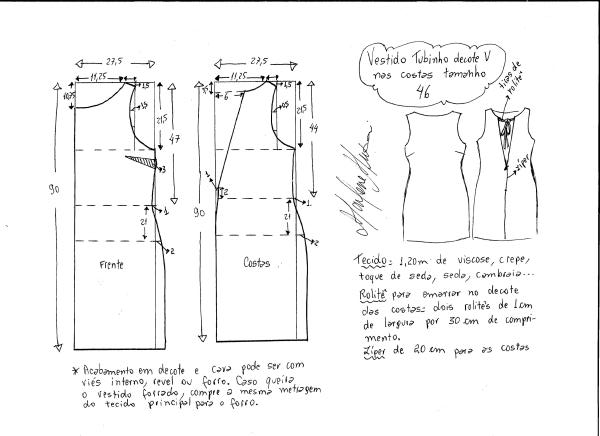 27,5
11,25
1,5
3,5
21,5
47
3
90
1
21
2
Frente
27,5
11,25
1,5
6
21,5
44
2
1
90
1
21
2
Costas
Vestido Tubinho decote V
nas costas tamanho
46
tiras de
rolitê
zíper
Marlene Mukai
Tecido: 1,20m de viscose, crepe,
toque de seda, seda, cambraia...
Rolitê para amarrar no decote
das costas: dois rolitês de 1cm
de largura por 30 cm de compri-
mento.
Zíper de 20 cm para as costas
* Acabamento em decote e cava pode ser com
viés interno, revel ou forro. Caso queira
o vestido forrado, compre a mesma metragem
do tecido principal para o forro.